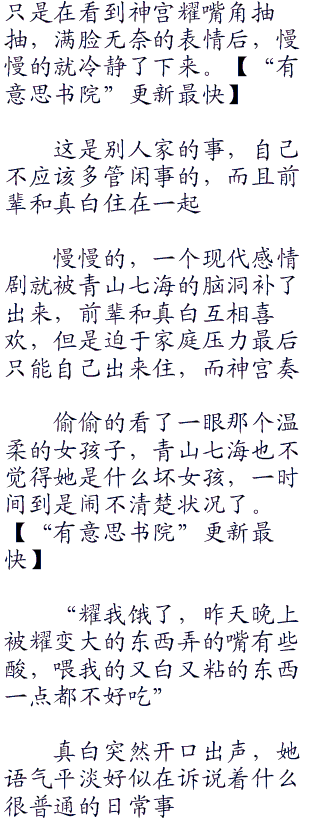 只是在看到神宫耀嘴角抽
抽，满脸无奈的表情后，慢
慢的就冷静了下来。【“有
意思书院”更新最快】
这是别人家的事，自己
不应该多管闲事的，而且前
辈和真白住在一起
慢慢的，一个现代感情
剧就被青山七海的脑洞补了
出来，前辈和真白互相喜
欢，但是迫于家庭压力最后
只能自己出来住，而神宫奏
偷偷的看了一眼那个温
柔的女孩子，青山七海也不
觉得她是什么坏女孩，一时
间到是闹不清楚状况了。
【“有意思书院”更新最
快】
真白突然开口出声，她
语气平淡好似在诉说着什么
很普通的日常事